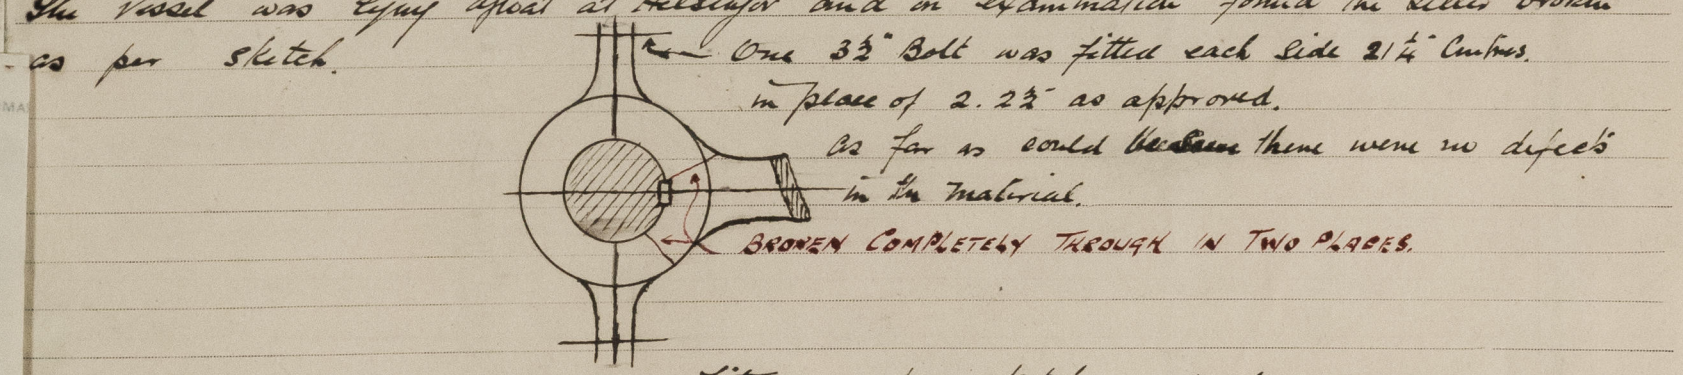 The vessel was lying afloat at Helsingor and on examination found the tiller broken
as per sketch.
One 3½" Bolt was fitted each side 21¼" Centres.
in place of 2. 2½" as approved.
as far as could be seen there were no defects
in the material.
BROKEN COMPLETELY THROUGH IN TWO PLACES.